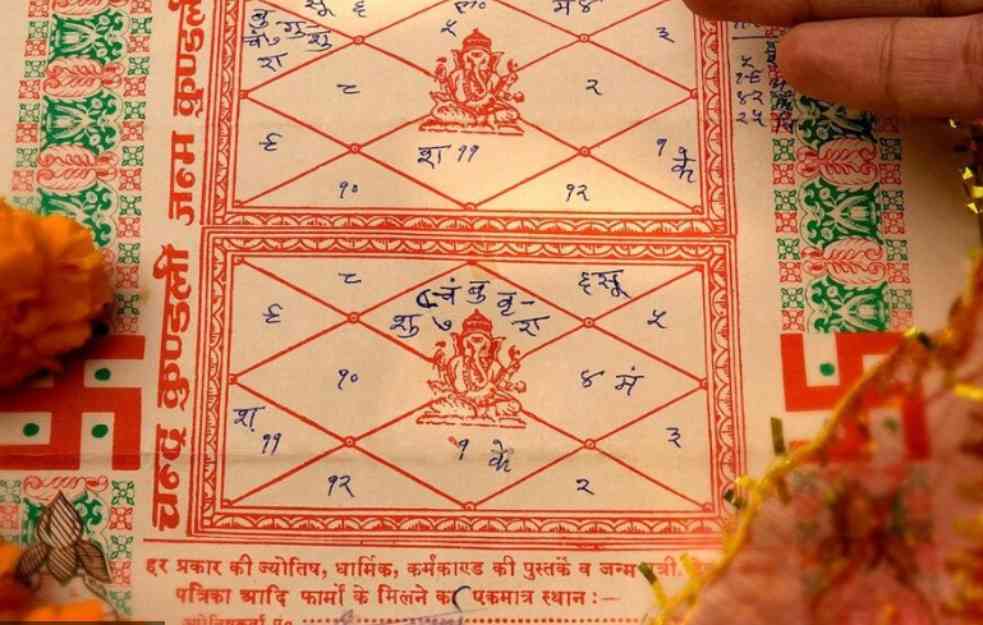 जन्म कुण्डली
सू ६
मं ४
बु
चं ७ गु शु
५
३
रा
८
२
९
श ११
१
के
१०
१२
चन्द्र कुण्डली
८
चं बु
६ सू
९
शु ७
रा
५
१०
४ मं
श
११
१ के
३
१२
२
हर प्रकार की ज्योतिष, धार्मिक, कर्मकाण्ड की पुस्तकें व जन्म
पत्रिका आदि फार्मो के मिलने का एकमात्र स्थान :—